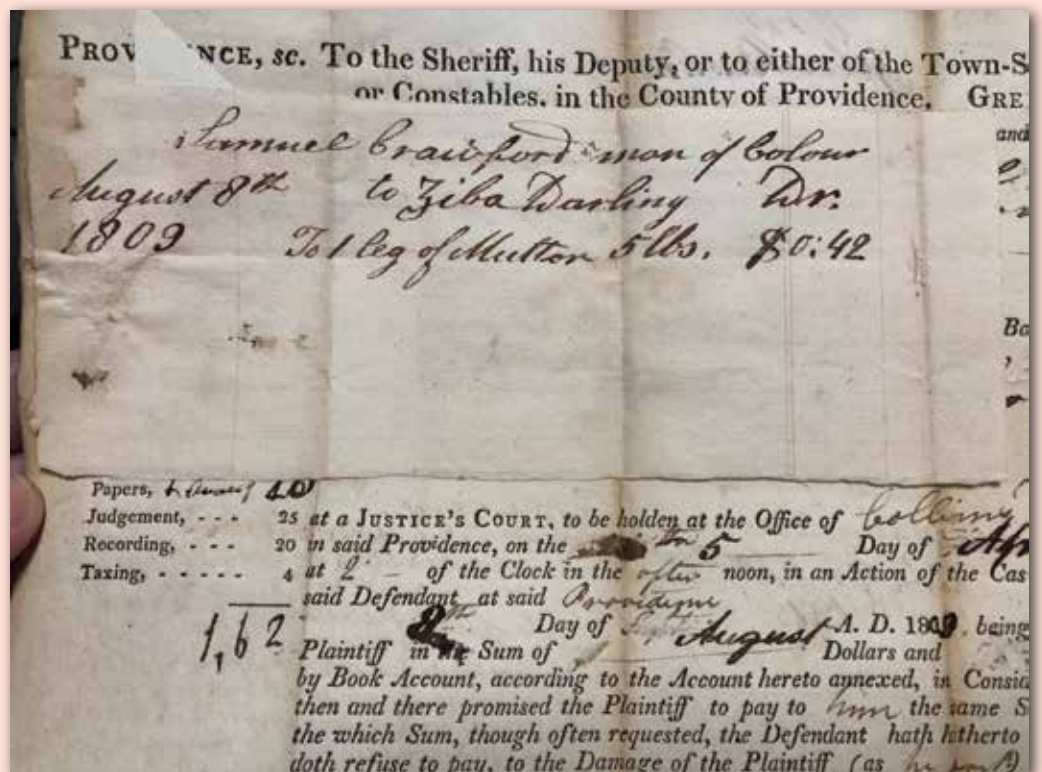 PROV NCE, sc. To the Sheriff, his Deputy, or to either of the Town-S
or Constables, in the County of Providence, GRE
and
Samuel Crawford man of Colour
August 8th to Ziba Darling Dr.
1809 To 1 leg of Mutton 5 lbs. $0:42
Bo
Papers, 40
Judgement, - - - 25 at a JUSTICE'S COURT, to be holden at the Office of
Recording, - - - 20 in said Providence, on the 5 Day of
Taxing, - - - - - 4 at 2 of the Clock in the after noon, in an Action of the Cas
said Defendant at said Providence
1,62 8th Day of August A. D. 1809. being
Plaintiff in the Sum of Dollars and
by Book Account, according to the Account hereto annexed, in Consid
then and there promised the Plaintiff to pay to him the same S
the which Sum, though often requested, the Defendant hath hitherto
doth refuse to pay, to the Damage of the Plaintiff (as he